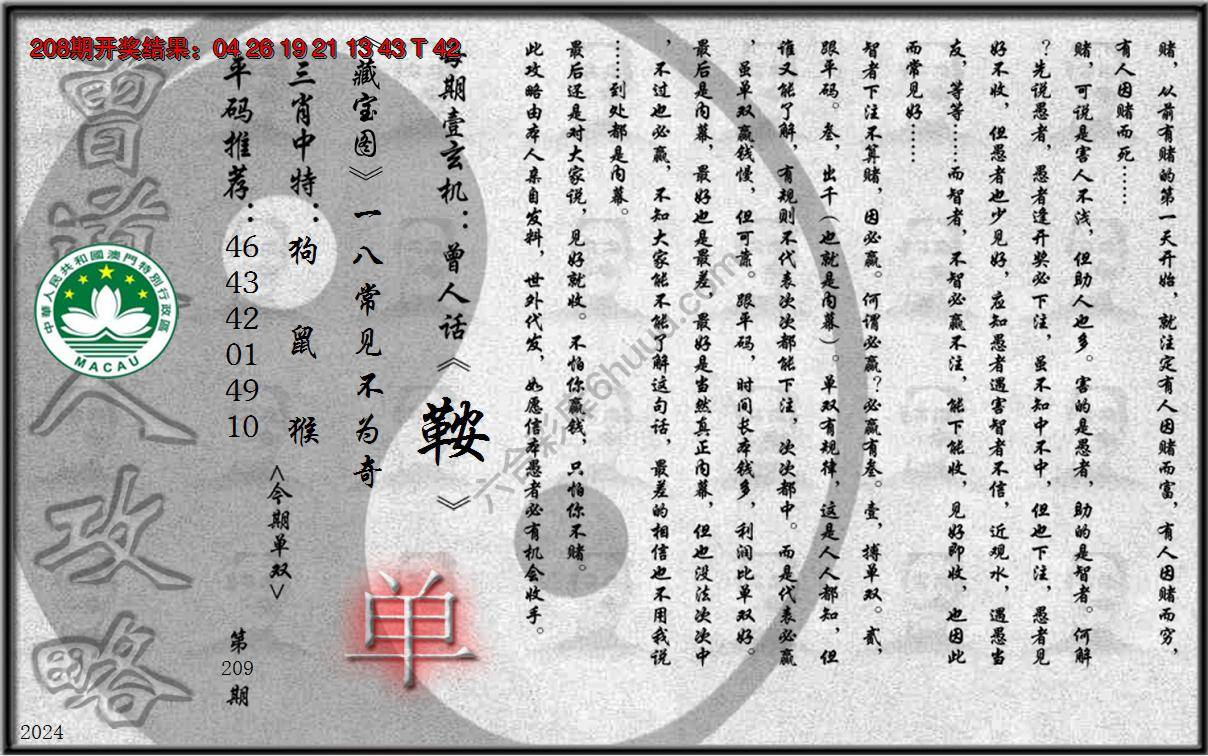 208期开奖结果：04 26 19 21 13 43 T 42
赌，从前有赌的第一天开始，就注定有人因赌而富，有人因赌而穷，
有人因赌而死……
赌，可说是害人不浅，但助人也多。害的是愚者，助的是智者。何解
？先说愚者，愚者逢开奖必下注，虽不知中不中，但也下注，愚者见
好不收，但愚者也少见好，应知愚者遇害智者不信，近观水，遇愚当
友，等等……而智者，不智必赢不注，能下能收，见好即收，也因此
而常见好……
智者下注不算赌，因必赢。何谓必赢？必赢有叁。壹，搏单双。贰，
跟平码。叁，出千（也就是内幕）。单双有规律，这是人人都知，但
谁又能了解，有规则不代表次次都能下注，次次都中。而是代表必赢
，虽单双赢钱慢，但可靠。跟平码，时间长本钱多，利润比单双好。
最后是内幕，最好也是最差，最好是当然真正内幕，但也没法次次中
，不过也必赢，不知大家能不能了解这句话，最差的相信也不用我说
……到处都是内幕。
最后还是对大家说，见好就收。不怕你赢钱，只怕你不赌。
此攻略由本人亲自发料，世外代发，如愿信本愚者必有机会收手。
每期壹玄机：曾人话《鞍》
《藏宝图》一八常见不为奇
三肖中特：狗 鼠 猴
<今期单双>
单
平码推荐：
46
43
42
01
49
10
第
209
期
曾道人攻略
中華人民共和國澳門特別行政區
MACAU
六合彩库6huuu.com
2024